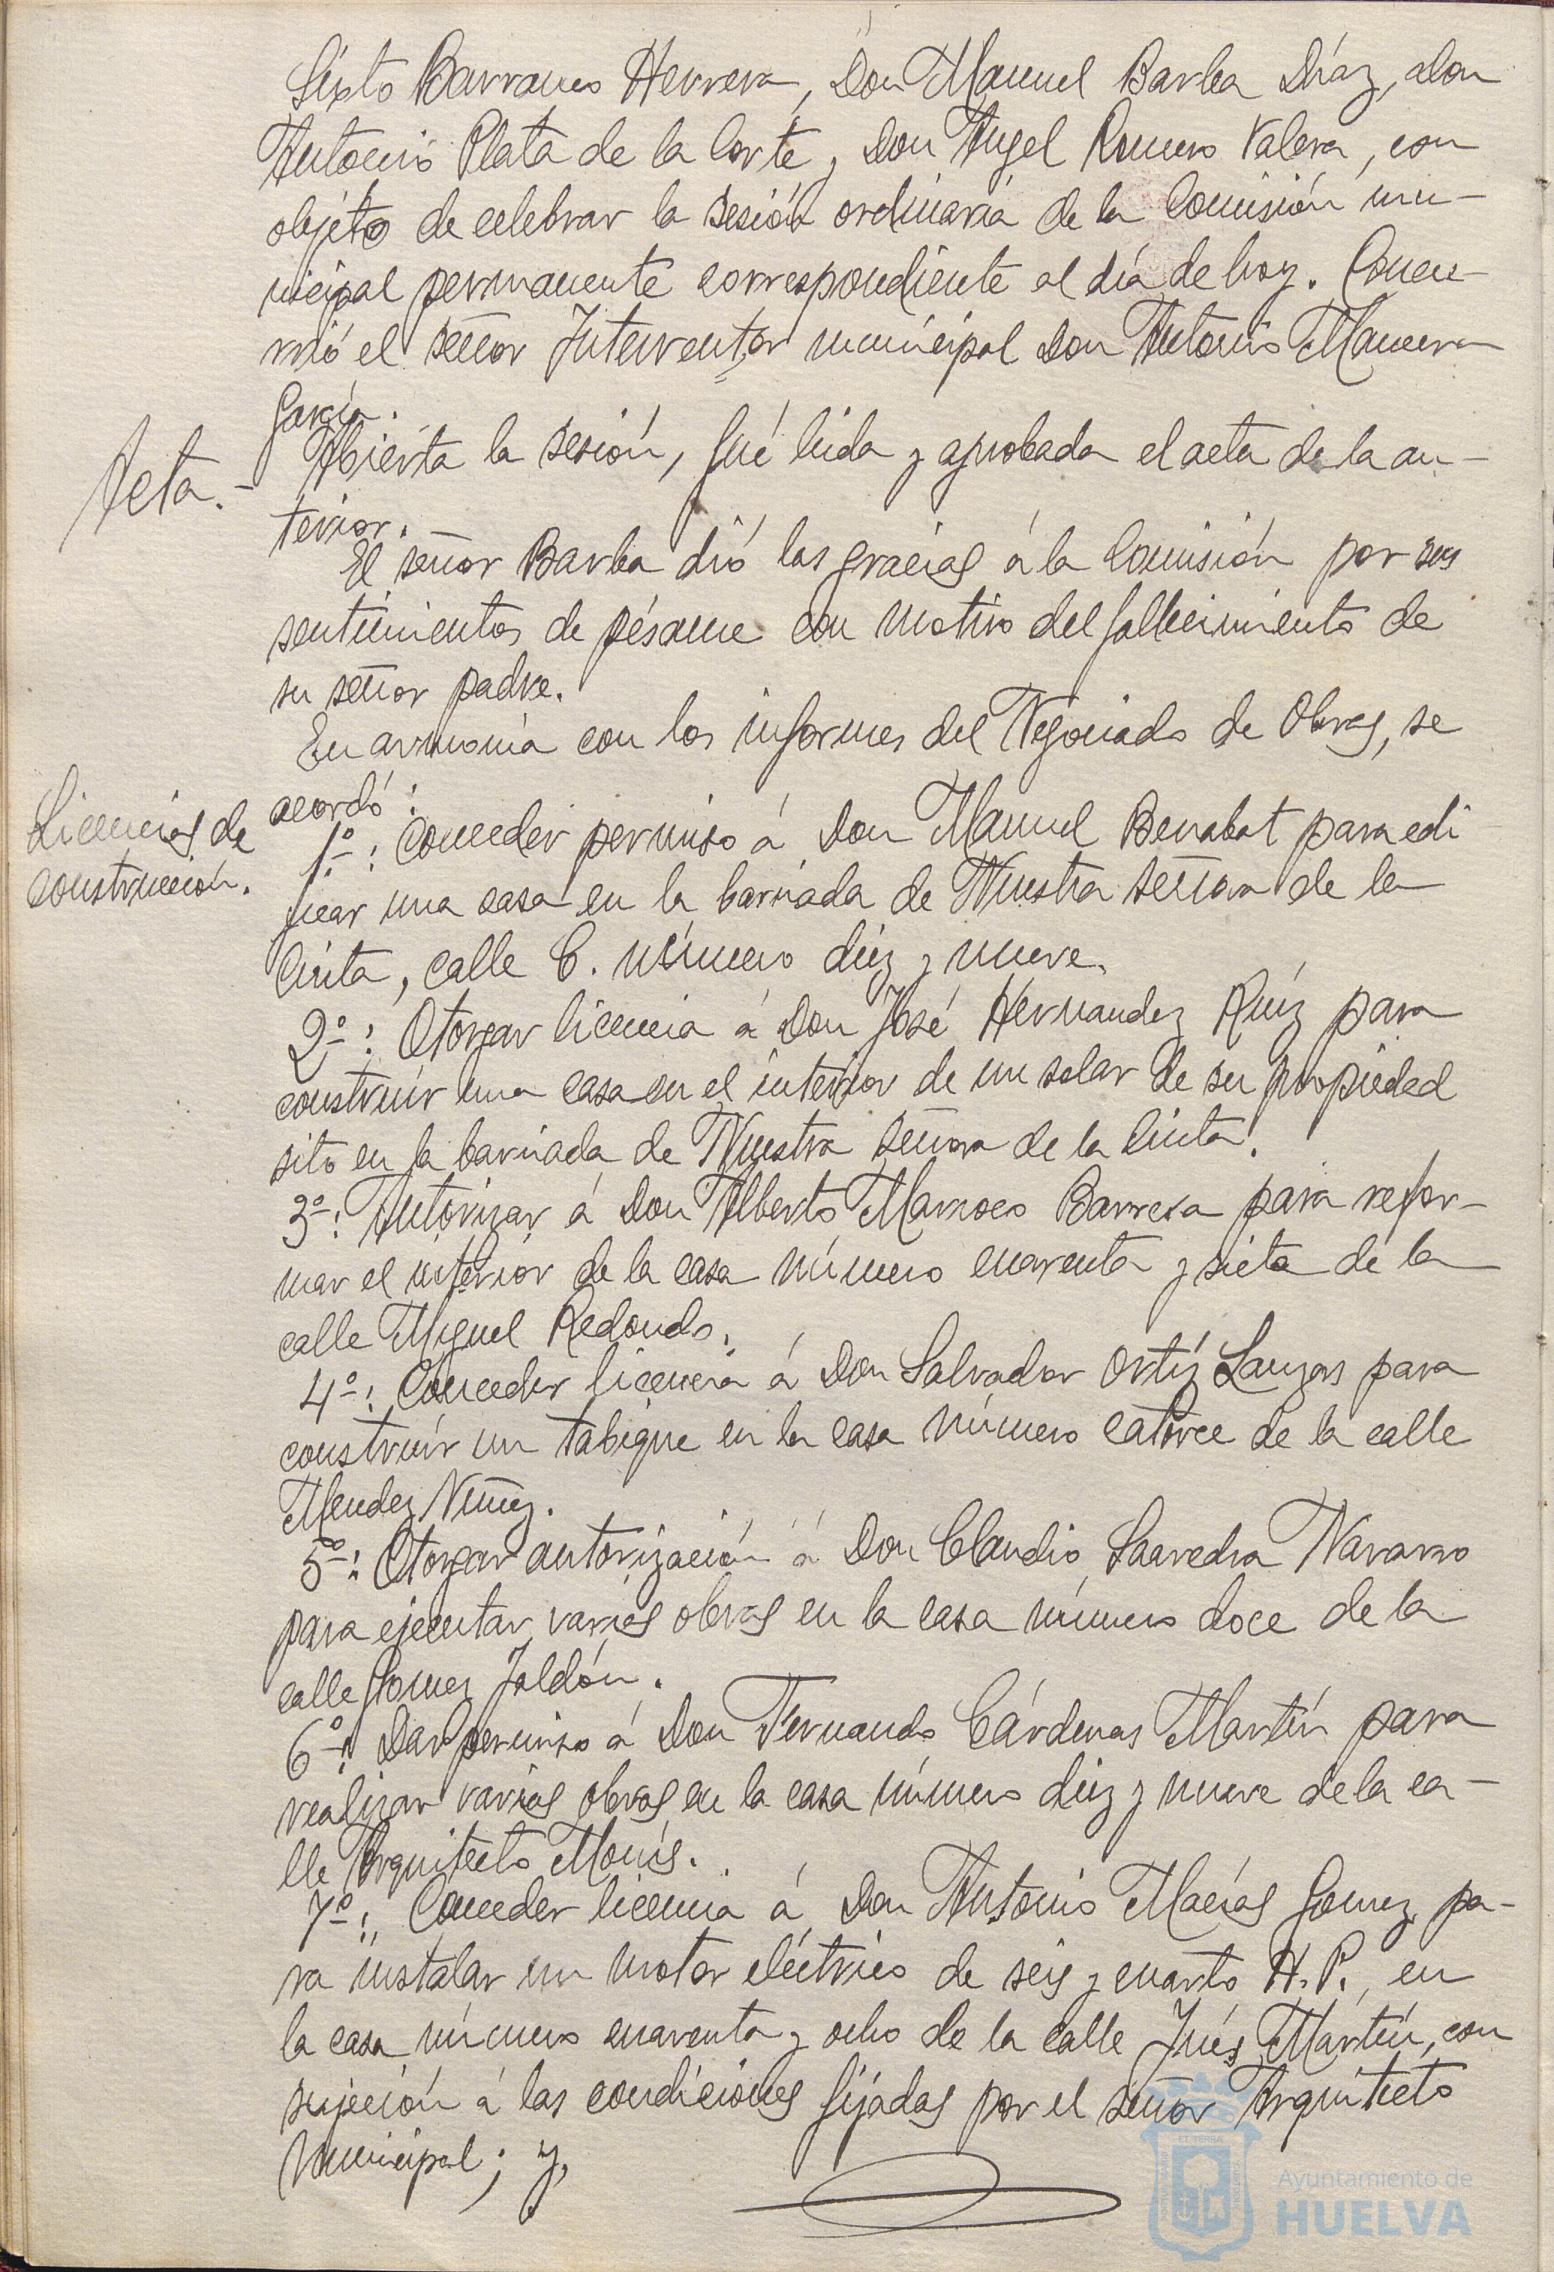 Sixto Barranco Herrera, Don Manuel Barba Díaz, Don
Antonio Plata de la Corte y Don Angel Romero Valera, con
objeto de celebrar la sesión ordinaria de la Comisión mu-
nicipal permanente correspondiente al día de hoy. Concu-
rrió el señor Interventor municipal Don Antonio Mancera
García.
Acta.-
Abierta la sesión, fué leida y aprobada el acta de la an-
terior.
El señor Barba dió las gracias á la Comisión por sus
sentimientos de pésame con motivo del fallecimiento de
su señor padre.
En armonía con los informes del Negociado de Obras, se
acordó:
Licencias de
construcción.
1º: Conceder permiso á Don Manuel Benabat para edi-
ficar una casa en la barriada de Nuestra señora de la
Cinta, calle C. número diez y nueve.
2º: Otorgar licencia á Don José Hernandez Ruíz para
construír una casa en el interior de un solar de su propiedad
sito en la barriada de Nuestra señora de la Cinta.
3º: Autorizar á Don Alberto Marroco Barrera para refor-
mar el interior de la casa número cuarenta y siete de la
calle Miguel Redondo.
4º: Conceder licencia á Don Salvador Ortíz para
construír un tabique en la casa número catorce de la calle
Mendez Nuñez.
5º: Otorgar autorización á Don Claudio Saavedra Navarro
para ejecutar varias obras en la casa número doce de la
calle Gomez Jaldón.
6º: Dar permiso á Don Fernando Cárdenas Martín para
realizar varias obras en la casa número diez y nueve de la ca-
lle Arquitecto Monís.
7º: Conceder licencia á Don Antonio Macías Gomez pa-
ra instalar un motor eléctrico de seis y cuarto H.P. en
la casa número cuarenta y ocho de la calle Inés Martín, con
sujeción á las condiciones fijadas por el señor Arquitecto
Municipal; y,
Ayuntamiento de
HUELVA